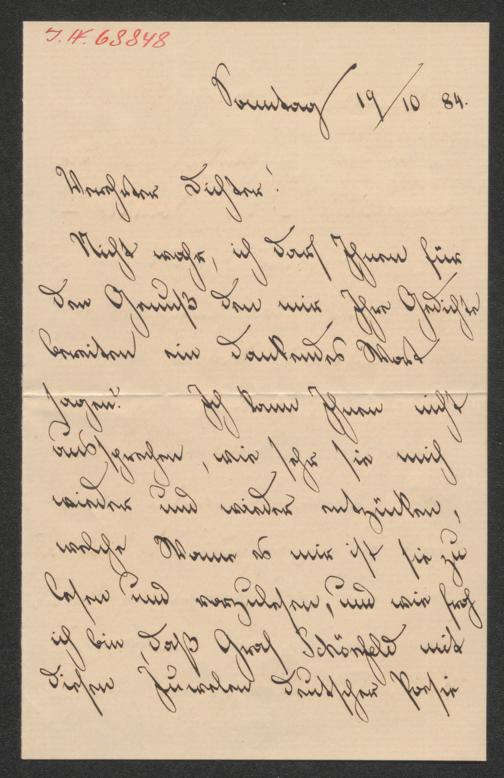 J.N. 68848
Sonntag 19/10 84.
Verehrter Dichter!
Nicht wahr, ich darf Ihnen für
den Genuß den mir Ihre Gedichte
bereiten ein dankendes Wort
sagen? Ich kann Ihnen nicht
aussprechen, wie sehr sie mich
wieder und wieder entzücken,
welche Wonne es mir ist sie zu
lesen und vorzulesen, und wie froh
ich bin daß Graf Schönfeld mit
diesen Juwelen deutscher Poesie